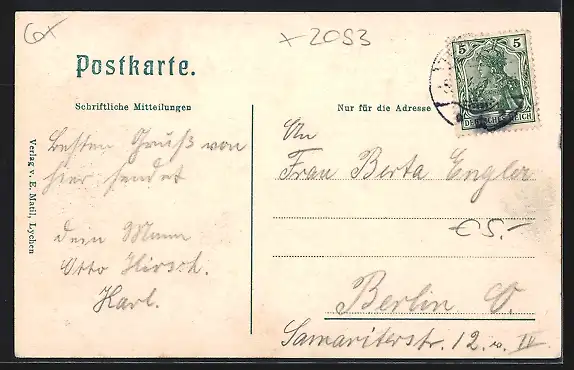 6x
x 2053
Postkarte.
Schriftliche Mitteilungen
Nur für die Adresse
5 5
DEUTSCHES REICH
Verlag v. E. Matil, Lychen
besten Gruß von
hier sendet
dein Mann
Otto Hirsch.
Karl.
An
Frau Berta Engler
€ 5.-
Berlin O.
Samariterstr. 12. IV